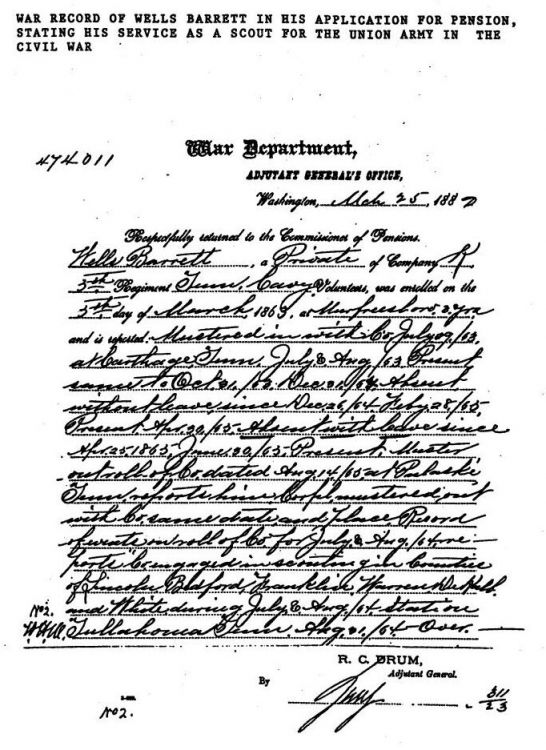 WAR RECORD OF WELLS BARRETT IN HIS APPLICATION FOR PENSION,
STATING HIS SERVICE AS A SCOUT FOR THE UNION ARMY IN THE
CIVIL WAR
474011
War Department,
ADJUTANT GENERAL'S OFFICE,
Washington, Mch 25, 1882
Respectfully returned to the Commissioner of Pensions.
Wells Barrett, a Private of Company K
5th Regiment Tenn. Cavy Volunteers, was enrolled on the
5th day of March, 1863, at Murfresboro, 3 yrs
and is reported. Mustered in with Co. July 09/63.
at Carthage, Tenn. July & Aug/63 Present
same to Oct. 31/63. Absent
without leave since Dec 26/64 Feby 28/65,
Present. Apr. 30/65. Absent with leave since
Apr. 25 1865. June 30/65. Present, Muster
out roll of Co. dated Aug 14/65 at Pulaski
Tenn. reports him Corpl. mustered out
with Co. same date and place. Record
of events on roll of Co. for July & Aug/64 re-
ports Co. engaged in scouting in Counties
of Lincoln, Bedford, Franklin, Warren, DeKalb
and White during July & Aug/64 Station
Tullahoma Tenn. Aug. 31/64 Over.
No2.
R. C. DRUM,
Adjutant General.
By
311
23
No2.